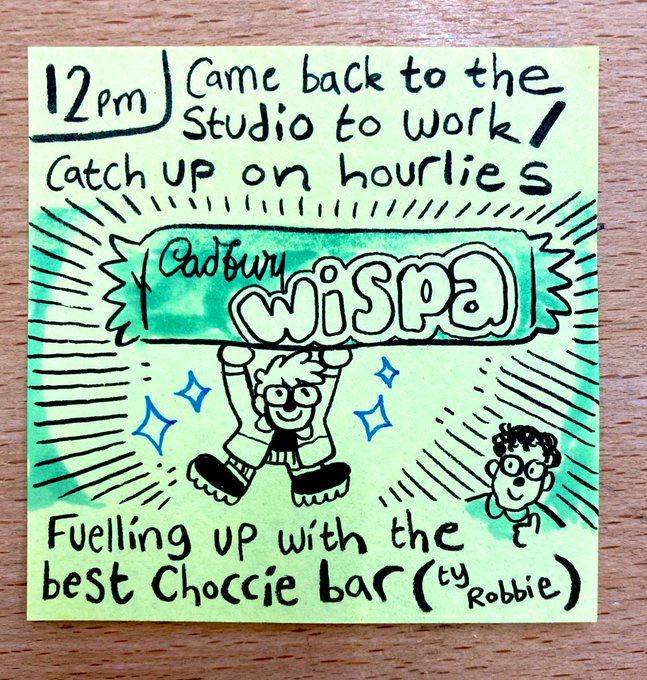 12pm
Came back to the
Studio to work/
Catch up on hourlies
Cadbury
wispa
Fuelling up with the
best Choccie bar (ty Robbie)